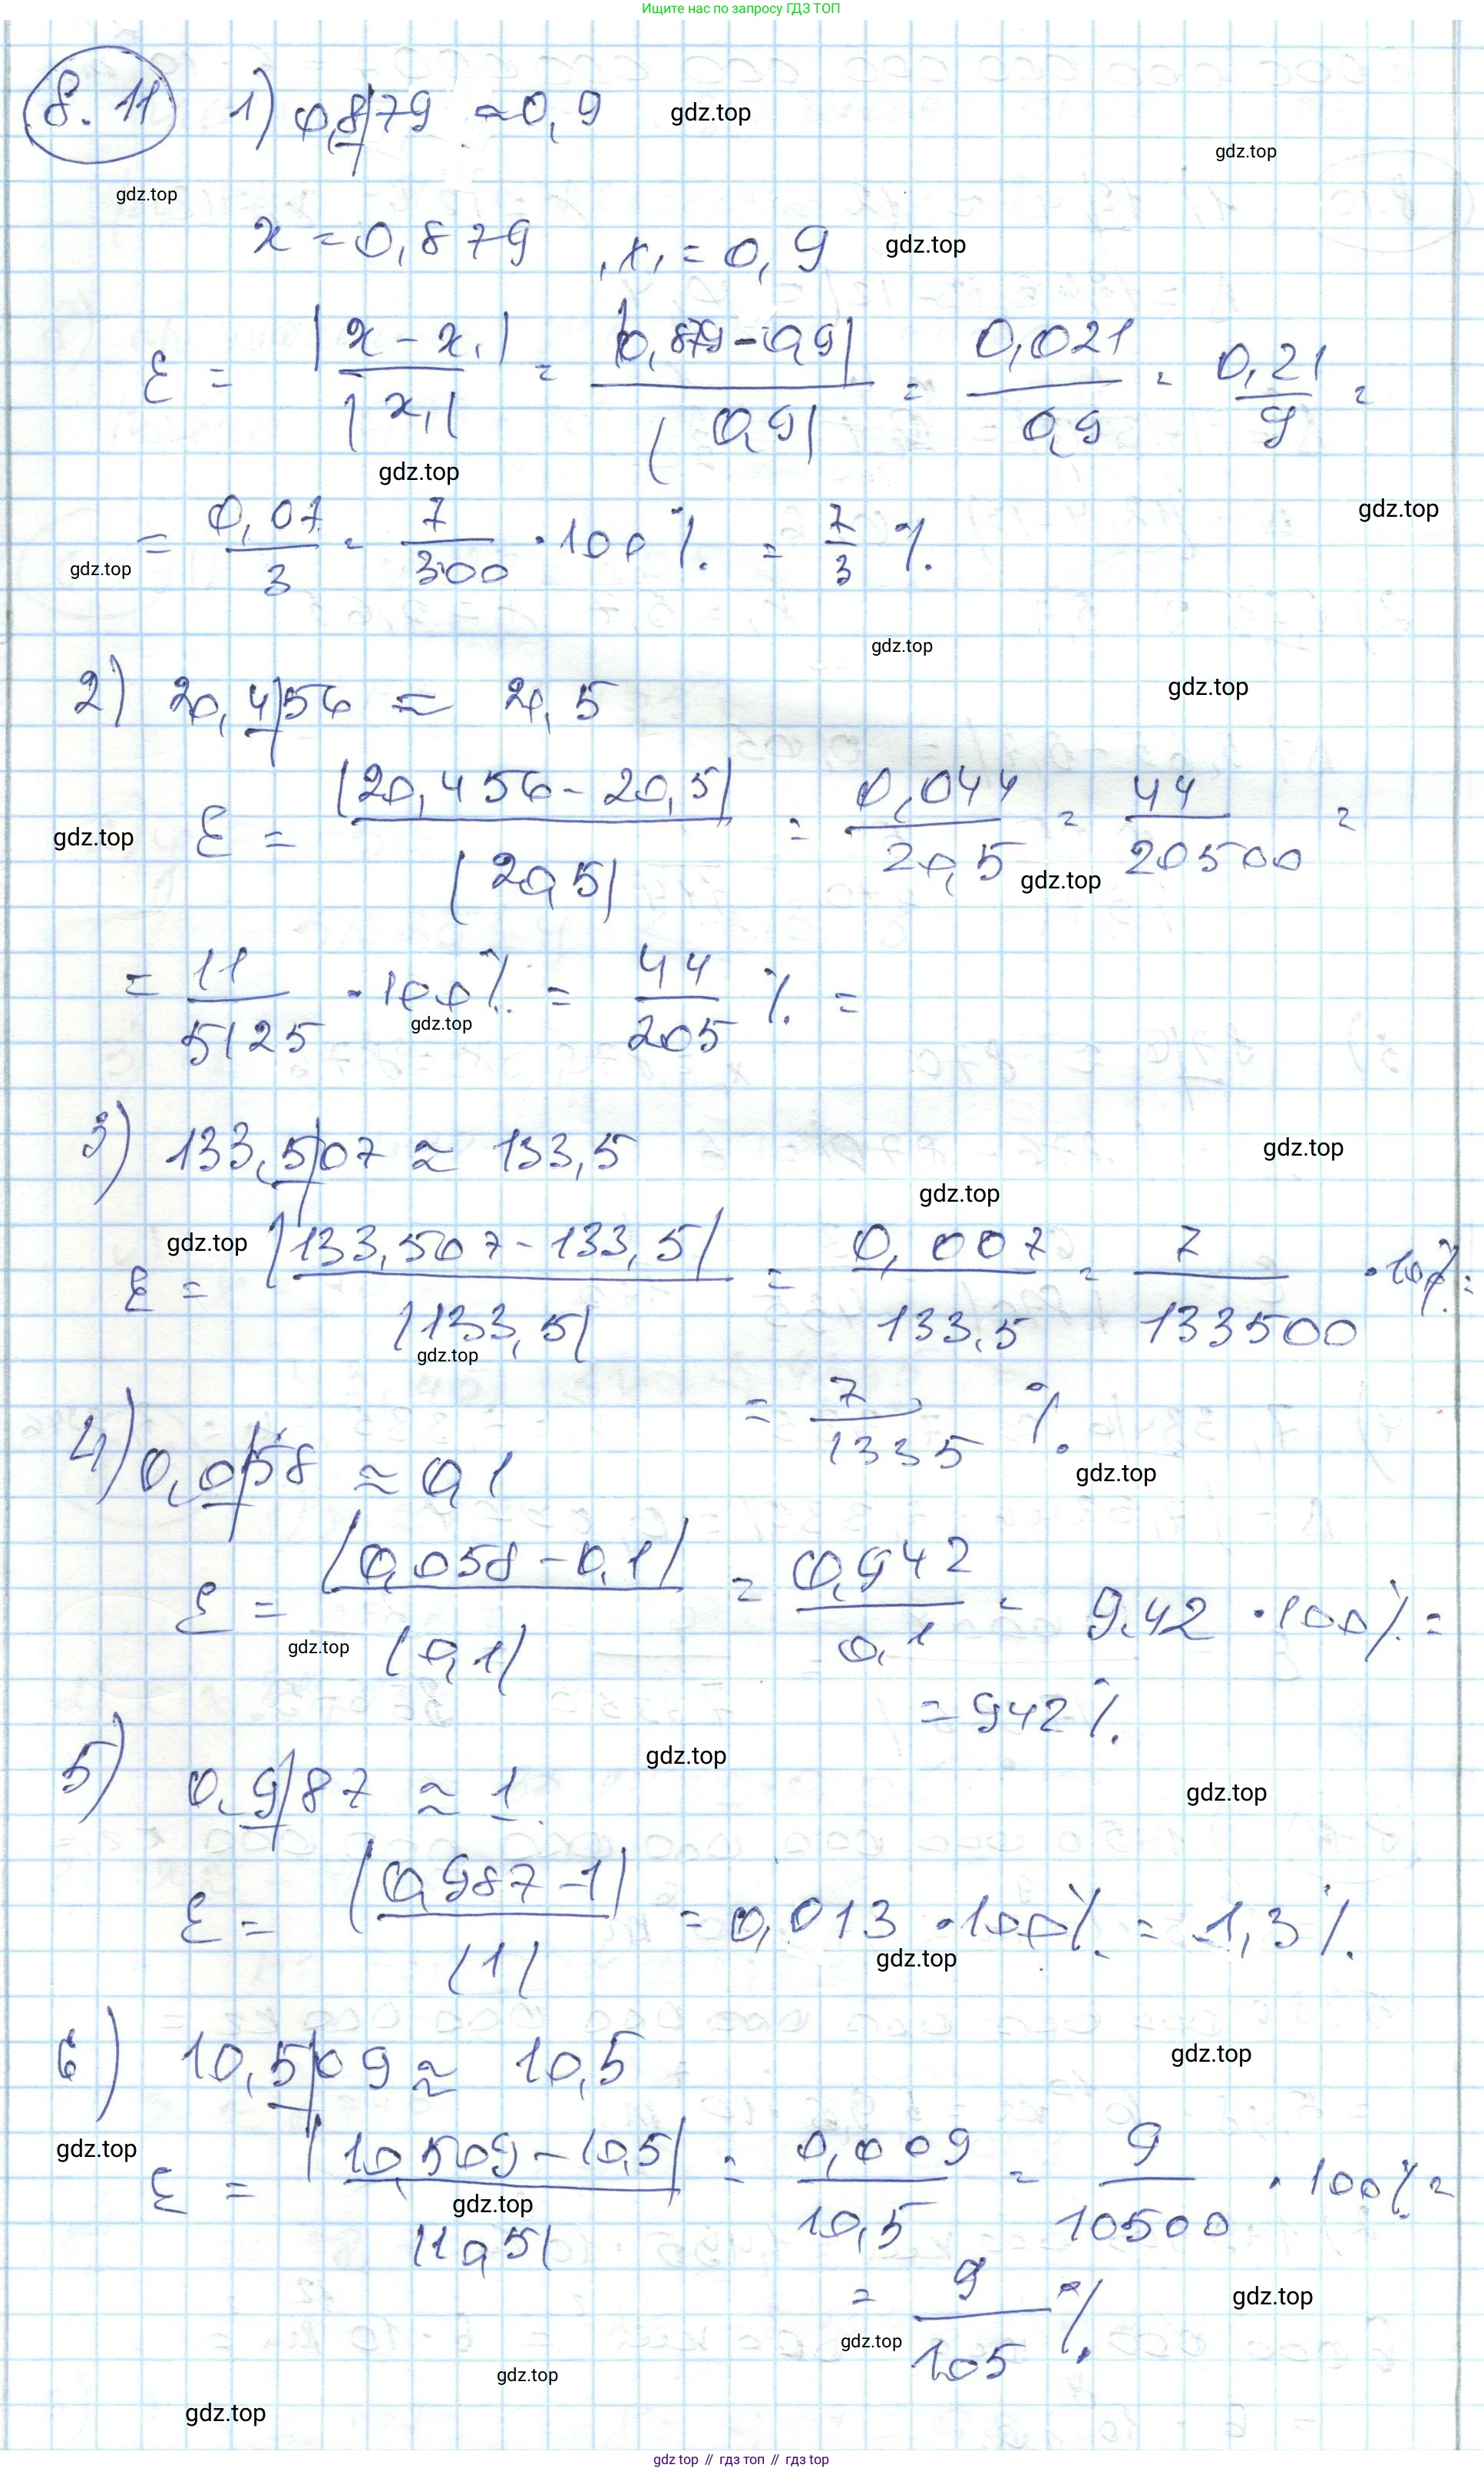 Ищите нас по запросу ГДЗ ТОП
8.11 1) 0,8|79 ≈ 0,9 gdz.top
gdz.top
gdz.top
x = 0,879 , x₁ = 0,9 gdz.top
ε = |x - x₁| / |x₁| = |0,879 - 0,9| / |0,9| = 0,021 / 0,9 = 0,21 / 9 =
gdz.top
gdz.top
= 0,07 / 3 = 7 / 300 · 100% = 7/3 %
gdz.top
gdz.top
2) 20,4|56 ≈ 20,5 gdz.top
gdz.top ε = |20,456 - 20,5| / |20,5| = 0,044 / 20,5 = 44 / 20500 =
gdz.top
= 11 / 5125 · 100% = 44 / 205 % =
gdz.top
3) 133,5|07 ≈ 133,5 gdz.top
gdz.top
gdz.top
ε = |133,507 - 133,5| / |133,5| = 0,007 / 133,5 = 7 / 133500 · 100% =
gdz.top
= 7 / 1335 %
4) 0,0|58 ≈ 0,1 gdz.top
ε = |0,058 - 0,1| / |0,1| = 0,942 / 0,1 = 9.42 · 100% =
gdz.top
= 942%
gdz.top
5) 0,9|87 ≈ 1 gdz.top
ε = |0,987 - 1| / |1| = 0,013 · 100% = 1,3%
gdz.top
6) 10,5|09 ≈ 10,5 gdz.top
gdz.top
ε = |10,509 - 10,5| / |10,5| = 0,009 / 10,5 = 9 / 10500 · 100% =
gdz.top
= 9 / 105 %
gdz.top
gdz.top
gdz.top
gdz.top
gdz top // гдз топ // гдз top